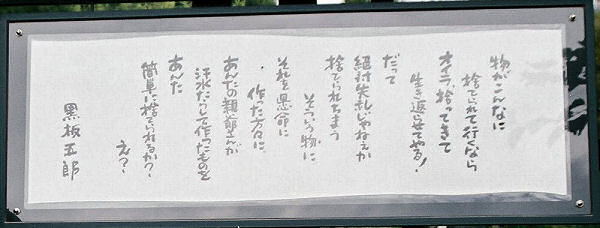 物がこんなに
捨てられて行くなら
オイラ、拾ってきて
生き返らせてやる!
だって
絶対失礼じゃねえか
捨てられちまう
そういう物に
それを懸命に
作った方々に、
あんたの親爺さんが
汗水たらして作ったものを
あんた
簡単に捨てられるか?
え?
黒板五郎